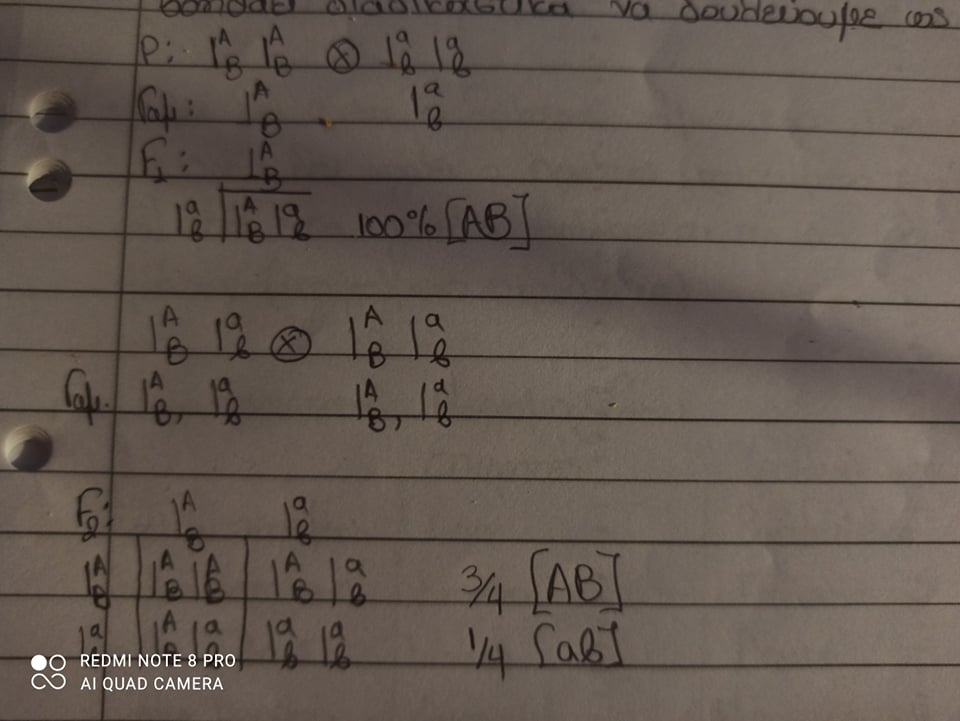 να δουλεύουμε ως
P: |A B |A B ⊗ |a β |a β
Γαμ: |A B |a β
F1: |A B
|a β |A B |a β 100% [AB]
|A B |a β ⊗ |A B |a β
Γαμ. |A B, |a β |A B, |a β
F2: |A B |a β
|A B |A B |A B |A B |a β 3/4 [AB]
|a |A B |a β |a β |a β 1/4 [aβ]
REDMI NOTE 8 PRO
AI QUAD CAMERA